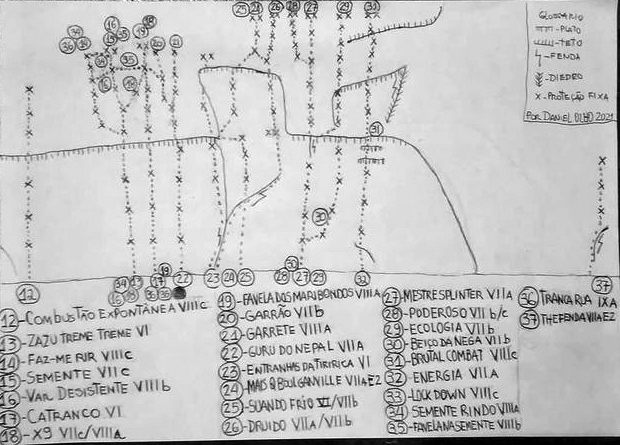 GLOSSÁRIO
- PLATÔ
- TETO
- FENDA
- DIEDRO
X - PROTEÇÃO FIXA
POR DANIEL OLHO 2021
36 34
16
19 35
19 18
20
21
14
16
35
18
25 24 26 28 27 29 31
31
30
12
34 13
19
17
22
23 24 25
30
27 29
32
37
12 - COMBUSTÃO EXPONTÂNEA VIIIC
13 - ZAZU TREME TREME VI
14 - FAZ-ME RIR VIIIC
15 - SEMENTE VIIC
16 - VAR. DESISTENTE VIIIb
17 - CATRANCO VI
18 - X9 VIIC/VIIIA
19 - FAVELA DOS MARIBONDOS VIIIA
20 - GARRÃO VIIb
21 - GARRETE VIIIA
22 - GURU DO NEPAL VIIA
23 - ENTRANHAS DA TIRIRICA VI
24 - VIIA E2
25 - SUANDO FRIO VI/VIIb
26 - DRUIDO VIIA/VIIb
27 - MESTRE SPLINTER VIIA
28 - PODEROSO VII b/c
29 - ECOLOGIA VIIb
30 - BEIÇO DA NEGA VIIb
31 - BRUTAL COMBAT VIIIC
32 - ENERGIA VIIA
33 - LOCKDOWN VIIIC
34 - SEMENTE RINDO VIIIA
35 - FAVELA NA SEMENTE VIIIb
36 TRANCA RUA IXA
37 THE FENDA VIIA E2